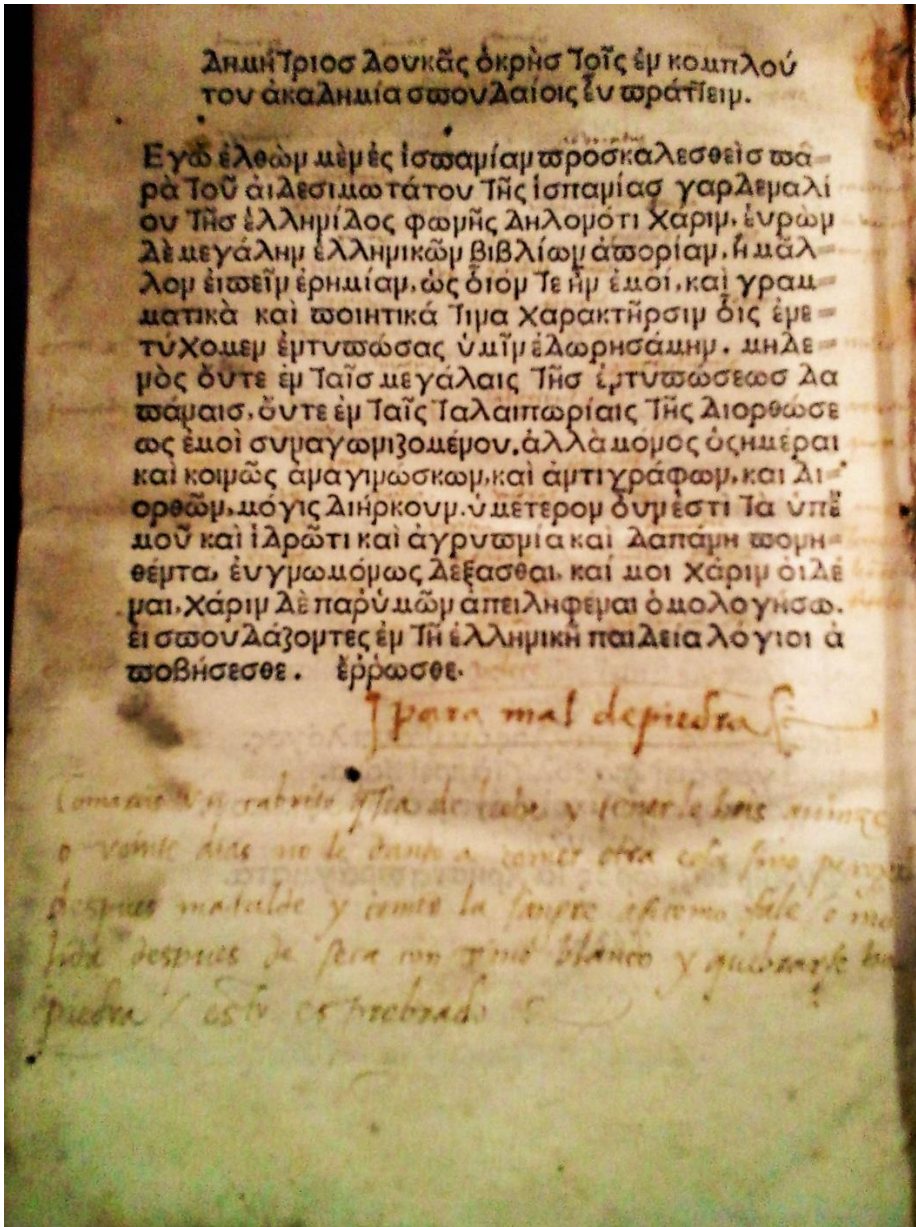 Δημήτριοσ Δουκᾶς ὁκρὴσ τοῖς ἐν κομπλού
του ἀκαδημία σπουδαίοις ἐυ πράττειν.
Εγὼ ἐλθὼν μὲν ἐς ἱσπανίαν προσκαλεσθεὶσ πα=
ρὰ τοῦ ἀιδεσιμωτάτου τῆς ἱσπανίασ γαρδεναλί
ου τῆσ ἑλληνίδος φωνῆς δηλονότι χάριν, ἑυρὼν
δὲ μεγάλην ἑλληνικῶν βιβλίων ἀπορίαν, ἢ μᾶλ=
λον ἐιπεῖν ἐρημίαν, ὡς ὁιόν τε ἦν ἐμοὶ, καὶ γραμ=
ματικὰ καὶ ποιητικά τινα χαρακτῆρσιν ὁις ἐνε=
τύχομεν ἐντυπώσας ὑμῖν ἐδωρησάμην. μηδε=
νὸς ὄυτε ἐν ταῖσ μεγάλαις τῆσ ἐντυπώσεωσ δα
πάναισ, ὄυτε ἐν ταῖς ταλαιπωρίαις τῆς διορθώσε
ως ἐμοὶ συναγωνιζομένου, ἀλλὰ μόνος ὁσημέραι
καὶ κοινῶς ἀναγινώσκων, καὶ ἀντιγράφων, καὶ δι=
ορθῶν, μόγις διήρκουν. ὑμέτερον ὀυν ἐστὶ τα ὑπ ἐ
μοῦ καὶ ἱδρῶτι καὶ ἀγρυπνία καὶ δαπάνη πονη=
θέντα, ἐυγνωμόνως δέξασθαι, καί μοι χάριν ἐιδέ
ναι, χάριν δὲ παρ ὑμῶν απειληφέναι ὁμολογήσω,
ει σπουδάζοντες ἐν τῆ ἑλληνικῆ παιδεια λόγιοι ἀ
ποβήσεσθε. ἐῤῥωσθε.
para mal de piedra
de leche y tenerle heis
o veinte dias no le dando a comer otra cosa sino
despues mataldo y comer la sangre
despues de seca con vino blanco y
piedra / esto es probado